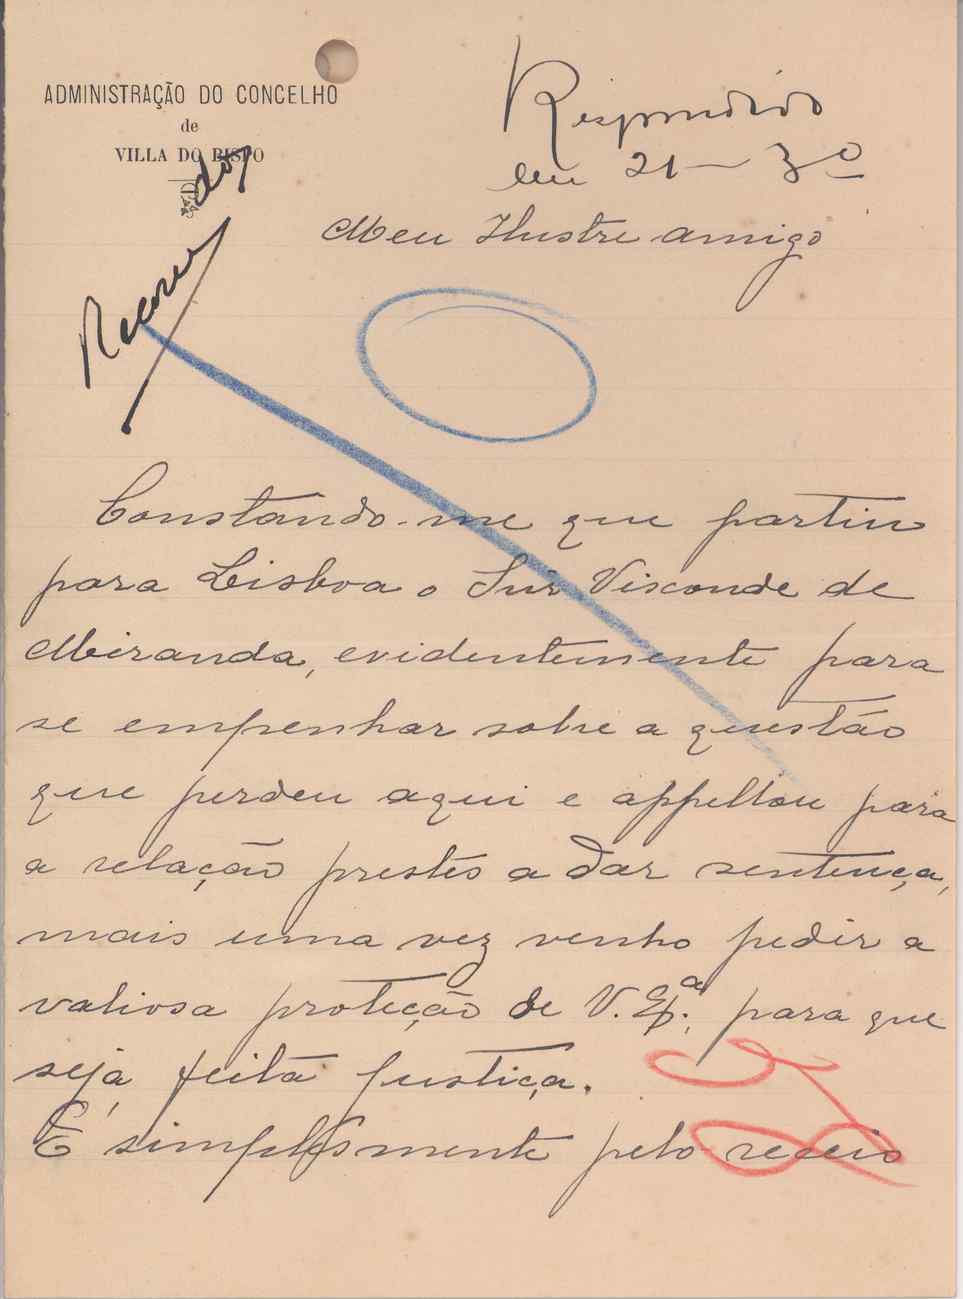 ADMINISTRAÇÃO DO CONCELHO
de
VILLA DO BISPO
Respondido
em 21-3º
Meu Ilustre amigo
Constando-me que partiu
para Lisboa o Snr Visconde de
Miranda, evidentemente para
se empenhar sobre a questão
que perdeu aqui e appellou para
a relação prestes a dar sentença,
mais uma vez venho pedir a
valiosa proteção de V. Exª. para que
seja feita justiça.
É simplesmente pelo receio